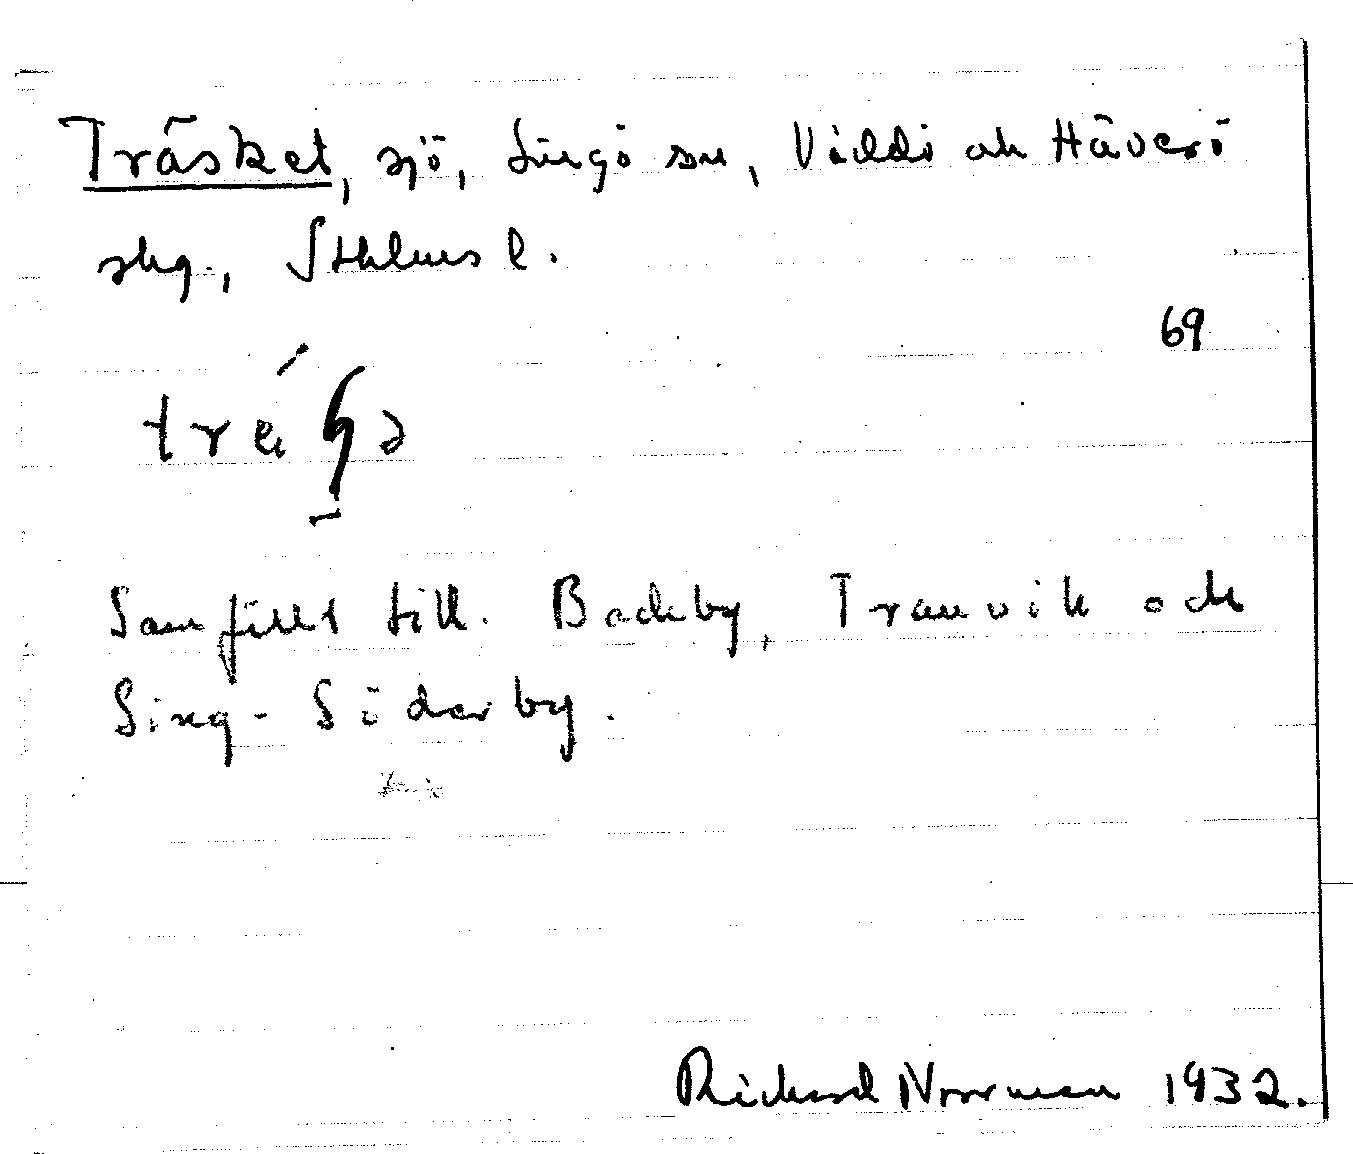 Träsket, sjö, Singö sn, Väddö och Häverö
skg., Sthlms l.
69
Samfällt till. Backby, Tranvik och
Sing-Söderby.
Richard Norrman 1932.